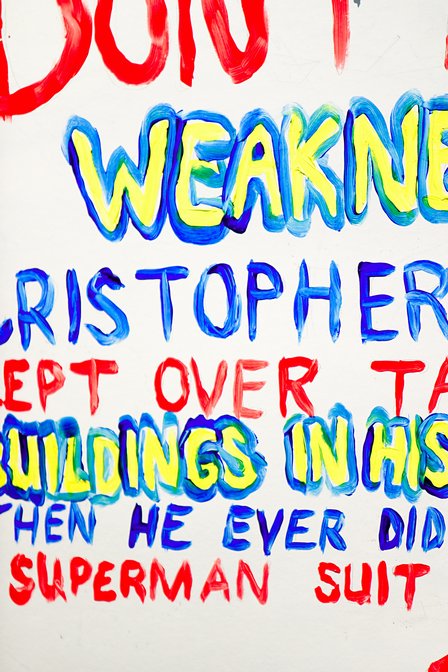 DON'T
WEAKNE
RISTOPHER
EPT OVER TA
BUILDINGS IN HIS
THEN HE EVER DID
SUPERMAN SUIT